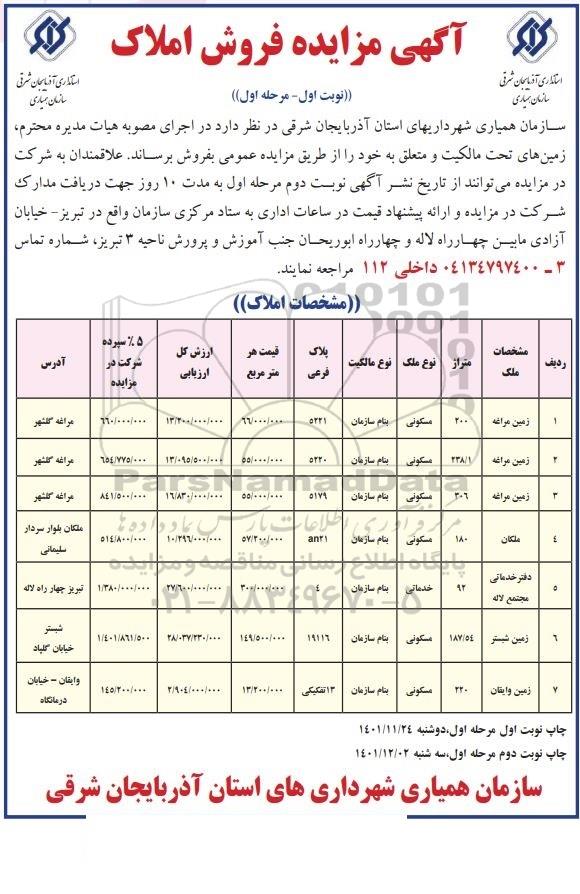 آگهی مزایده فروش املاک
استانداری آذربایجان شرقی
سازمان همیاری
استانداری آذربایجان شرقی
سازمان همیاری
((نوبت اول- مرحله اول))
سازمان همیاری شهرداریهای استان آذربایجان شرقی در نظر دارد در اجرای مصوبه هیات مدیره محترم،
زمین‌های تحت مالکیت و متعلق به خود را از طریق مزایده عمومی بفروش برساند. علاقمندان به شرکت
در مزایده می‌توانند از تاریخ نشر آگهی نوبت دوم مرحله اول به مدت ۱۰ روز جهت دریافت مدارک
شرکت در مزایده و ارائه پیشنهاد قیمت در ساعات اداری به ستاد مرکزی سازمان واقع در تبریز- خیابان
آزادی مابین چهارراه لاله و چهارراه ابوریحان جنب آموزش و پرورش ناحیه ۳ تبریز، شماره تماس
۳ ـ ۰۴۱۳۴۷۹۷۴۰۰ داخلی ۱۱۲ مراجعه نمایند.
((مشخصات املاک))
ردیف | مشخصات ملک | متراژ | نوع ملک | نوع مالکیت | پلاک فرعی | قیمت هر متر مربع | ارزش کل ارزیابی | ۵٪ سپرده شرکت در مزایده | آدرس
۱ | زمین مراغه | ۲۰۰ | مسکونی | بنام سازمان | ۵۲۲۱ | ۶۶/۰۰۰/۰۰۰ | ۱۳/۲۰۰/۰۰۰/۰۰۰ | ۶۶۰/۰۰۰/۰۰۰ | مراغه گلشهر
۲ | زمین مراغه | ۲۳۸/۱ | مسکونی | بنام سازمان | ۵۲۲۰ | ۵۵/۰۰۰/۰۰۰ | ۱۳/۰۹۵/۵۰۰/۰۰۰ | ۶۵۴/۷۷۵/۰۰۰ | مراغه گلشهر
۳ | زمین مراغه | ۳۰۶ | مسکونی | بنام سازمان | ۵۱۷۹ | ۵۵/۰۰۰/۰۰۰ | ۱۶/۸۳۰/۰۰۰/۰۰۰ | ۸۴۱/۵۰۰/۰۰۰ | مراغه گلشهر
۴ | ملکان | ۱۸۰ | مسکونی | بنام سازمان | an۲۱ | ۵۷/۲۰۰/۰۰۰ | ۱۰/۲۹۶/۰۰۰/۰۰۰ | ۵۱۴/۸۰۰/۰۰۰ | ملکان بلوار سردار سلیمانی
۵ | دفترخدماتی مجتمع لاله | ۹۲ | خدماتی | بنام سازمان | ۴ | ۳۰۰/۰۰۰/۰۰۰ | ۲۷/۶۰۰/۰۰۰/۰۰۰ | ۱/۳۸۰/۰۰۰/۰۰۰ | تبریز چهار راه لاله
۶ | زمین شبستر | ۱۸۷/۵۴ | مسکونی | بنام سازمان | ۱۹۱۱۶ | ۱۴۹/۵۰۰/۰۰۰ | ۲۸/۰۳۷/۲۳۰/۰۰۰ | ۱/۴۰۱/۸۶۱/۵۰۰ | شبستر خیابان گلباد
۷ | زمین وایقان | ۲۲۰ | مسکونی | بنام سازمان | ۱۳تفکیکی | ۱۳/۲۰۰/۰۰۰ | ۲/۹۰۴/۰۰۰/۰۰۰ | ۱۴۵/۲۰۰/۰۰۰ | وایقان – خیابان درمانگاه
ParsNamadData
مرکز فرآوری اطلاعات پارس نماد داده ها
پایگاه اطلاع رسانی مناقصه و مزایده
۰۲۱-۸۸۳۴۹۶۷۰-۵
چاپ نوبت اول مرحله اول،دوشنبه ۱۴۰۱/۱۱/۲۴
چاپ نوبت دوم مرحله اول،سه شنبه ۱۴۰۱/۱۲/۰۲
سازمان همیاری شهرداری های استان آذربایجان شرقی